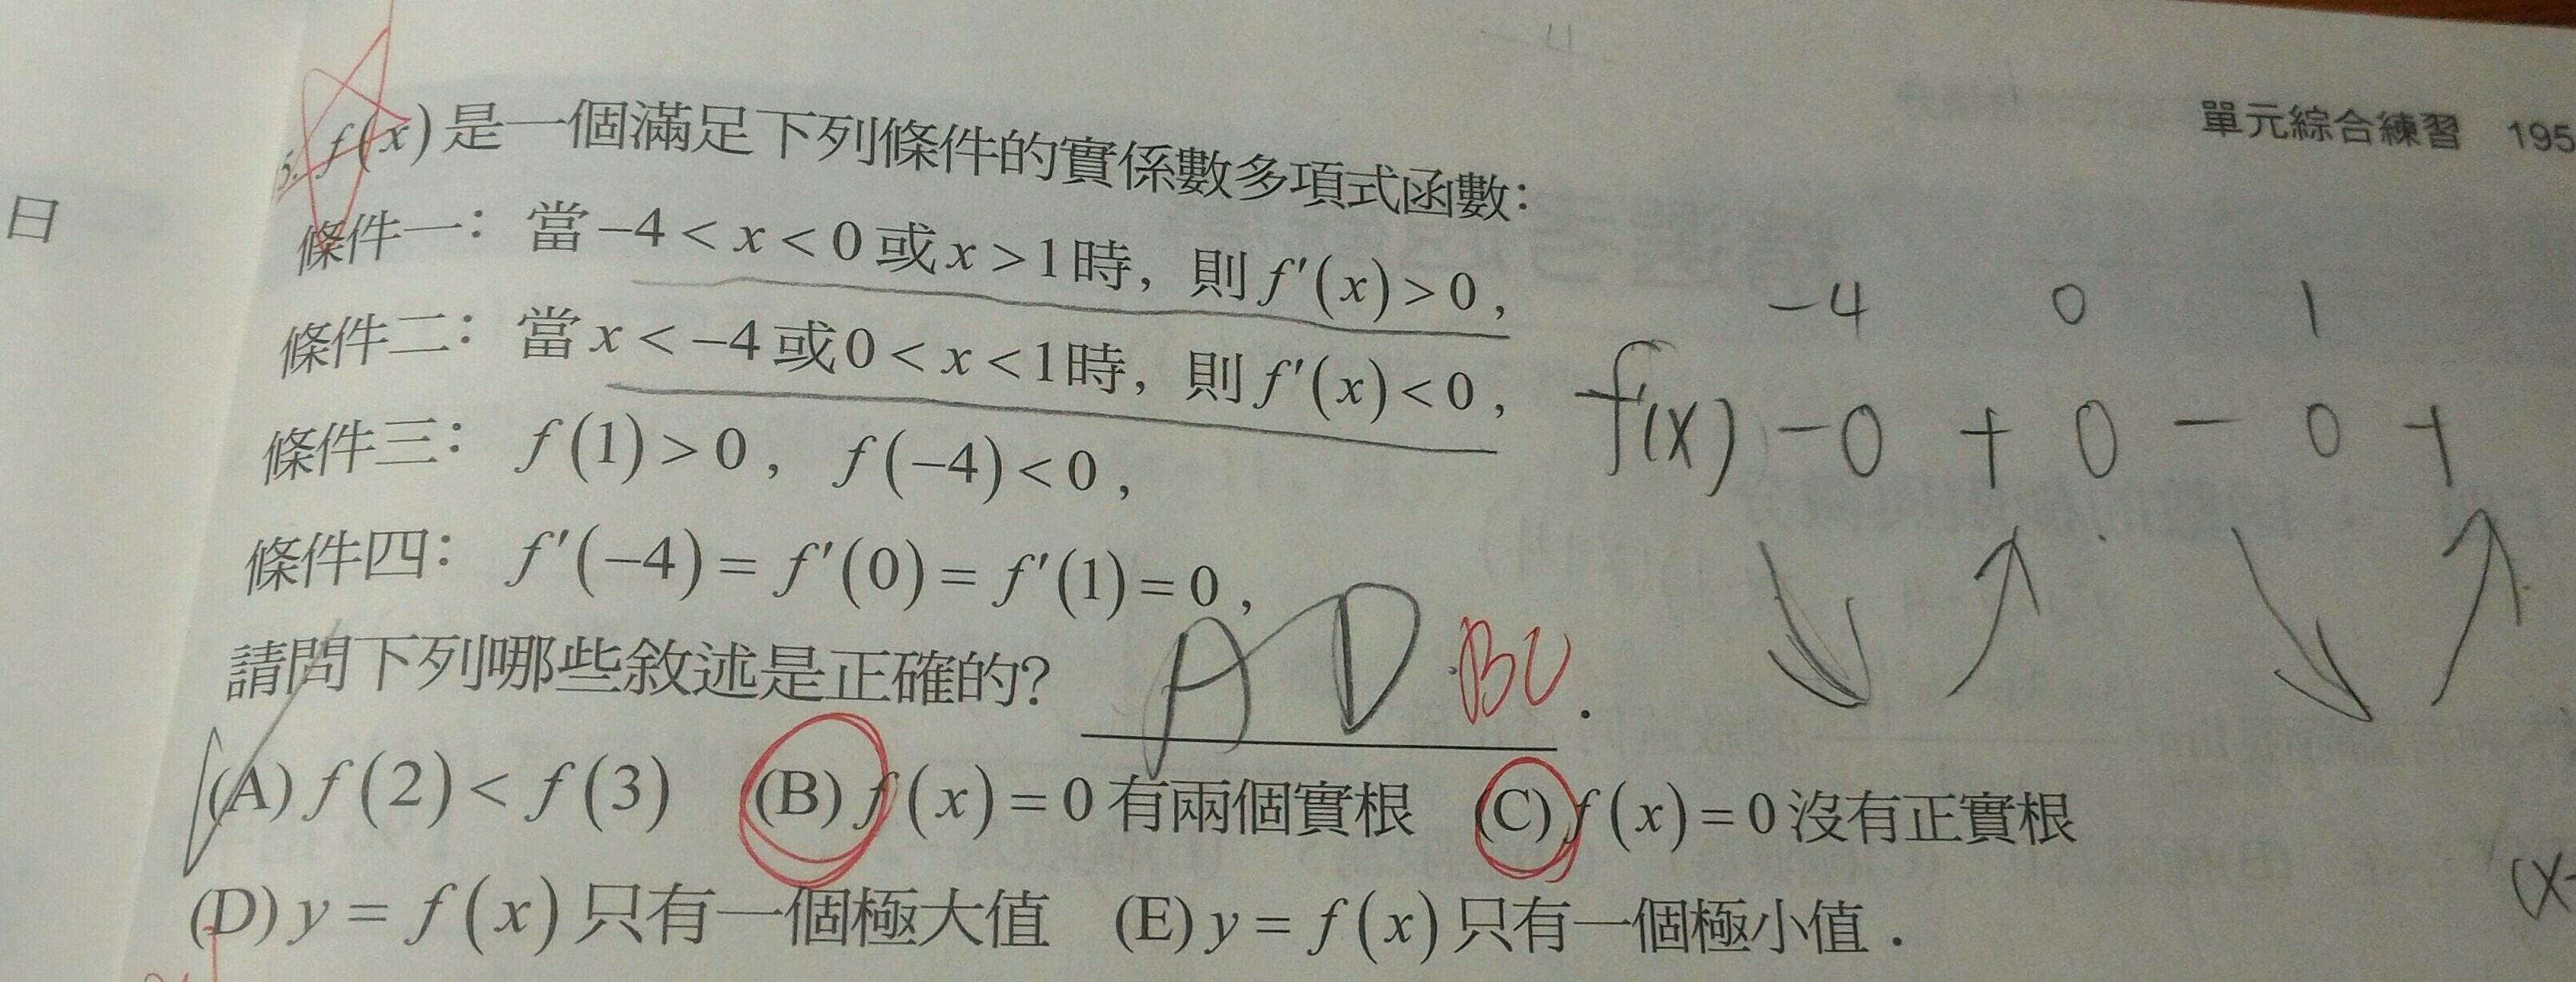 單元綜合練習 195
日
5. f(x)是一個滿足下列條件的實係數多項式函數：
條件一：當−4<x<0或x>1時，則f′(x)>0，
條件二：當x<−4或0<x<1時，則f′(x)<0，
條件三：f(1)>0，f(−4)<0，
條件四：f′(−4)=f′(0)=f′(1)=0，
請問下列哪些敘述是正確的？ AD BC .
(A) f(2)<f(3) (B) f(x)=0有兩個實根 (C) f(x)=0沒有正實根
(D) y=f(x)只有一個極大值 (E) y=f(x)只有一個極小值．
−4 0 1
f'(x) − 0 + 0 − 0 +
(x-